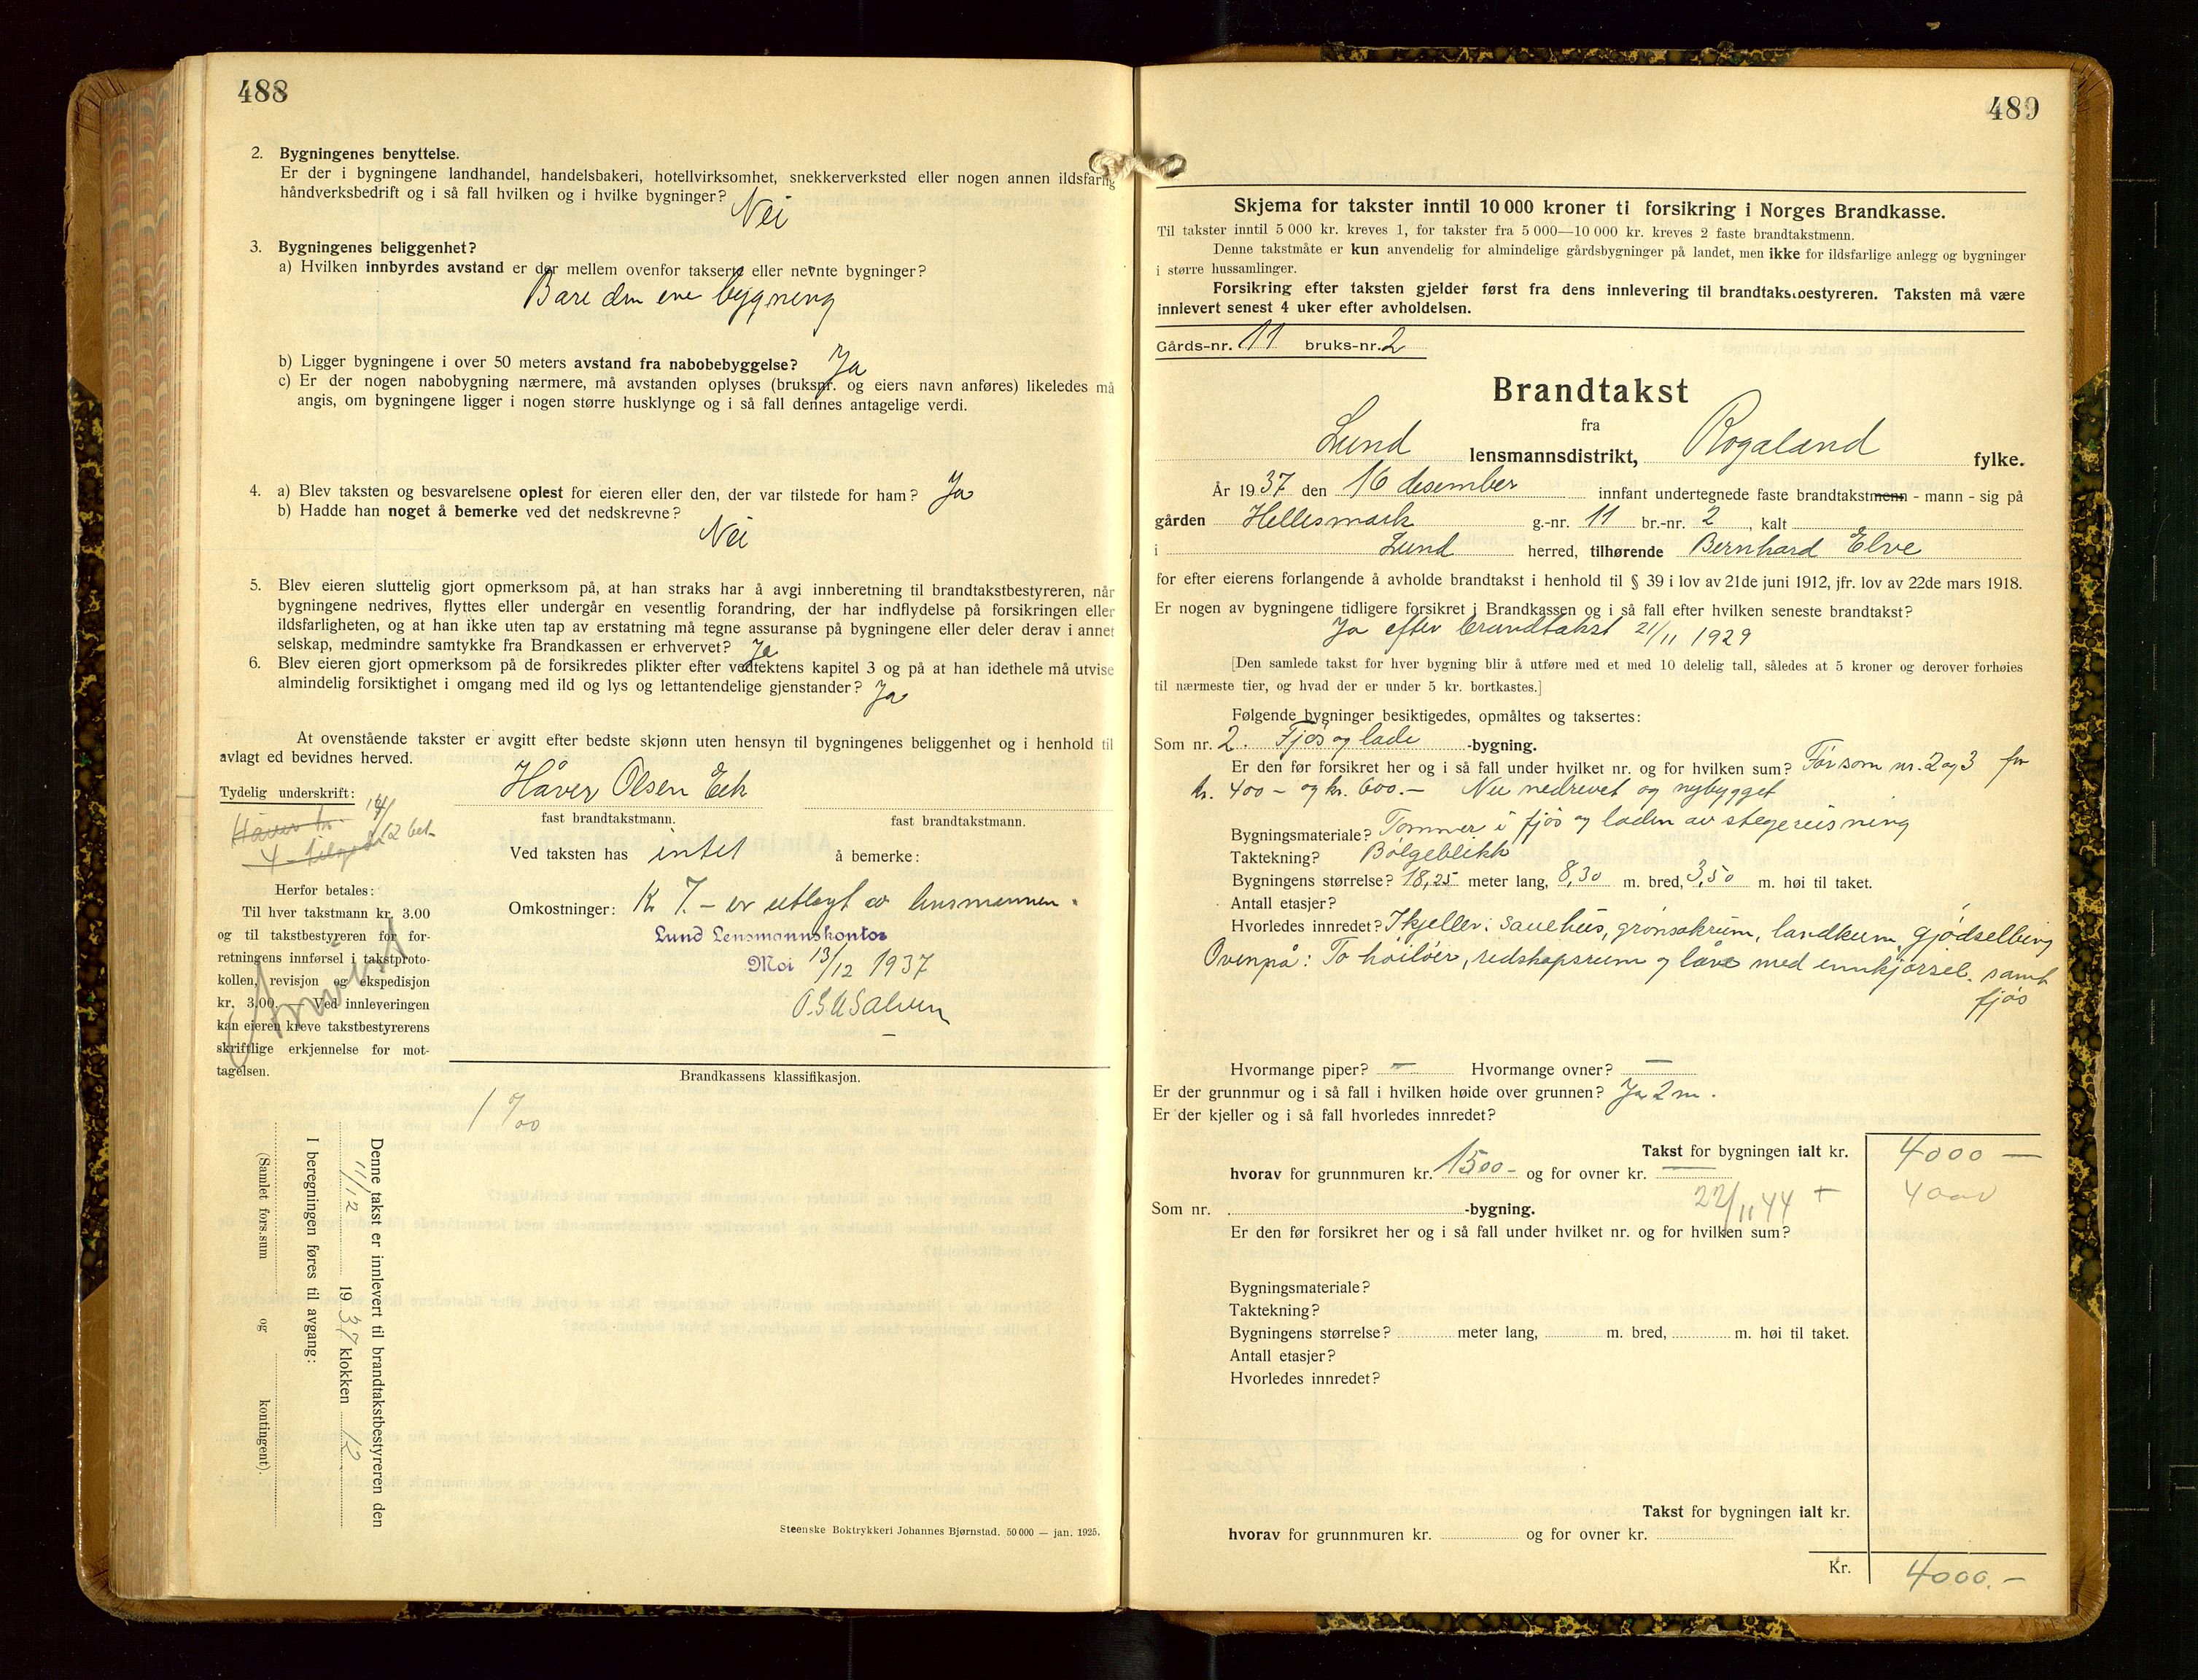 488
2. Bygningenes benyttelse.
Er der i bygningene landhandel, handelsbakeri, hotellvirksomhet, snekkerverksted eller nogen annen ildsfarlig
håndverksbedrift og i så fall hvilken og i hvilke bygninger? Nei
3. Bygningenes beliggenhet?
a) Hvilken innbyrdes avstand er der mellem ovenfor takserte eller nevnte bygninger?
Bare den ene bygning
b) Ligger bygningene i over 50 meters avstand fra nabobebyggelse? Ja
c) Er der nogen nabobygning nærmere, må avstanden oplyses (bruksnr. og eiers navn anføres) likeledes må
angis, om bygningene ligger i nogen større husklynge og i så fall dennes antagelige verdi.
4. a) Blev taksten og besvarelsene oplest for eieren eller den, der var tilstede for ham? Ja
b) Hadde han noget å bemerke ved det nedskrevne?
Nei
5. Blev eieren sluttelig gjort opmerksom på, at han straks har å avgi innberetning til brandtakstbestyreren, når
bygningene nedrives, flyttes eller undergår en vesentlig forandring, der har indflydelse på forsikringen eller
ildsfarligheten, og at han ikke uten tap av erstatning må tegne assuranse på bygningene eller deler derav i annet
selskap, medmindre samtykke fra Brandkassen er erhvervet? Ja
6. Blev eieren gjort opmerksom på de forsikredes plikter efter vedtektens kapitel 3 og på at han idethele må utvise
almindelig forsiktighet i omgang med ild og lys og lettantendelige gjenstander? Ja
At ovenstående takster er avgitt efter bedste skjønn uten hensyn til bygningenes beliggenhet og i henhold til
avlagt ed bevidnes herved.
Tydelig underskrift: Håver Olsen Eek
14/12 bet.
fast brandtakstmann. fast brandtakstmann.
Ved taksten has intet å bemerke:
Omkostninger: Kr 7.- er utlagt av lensmannen.
Lund Lensmannskontor
Moi 13/12 1937
Herfor betales:
Til hver takstmann kr. 3.00
og til takstbestyreren for for-
retningens innførsel i takstproto-
kollen, revisjon og ekspedisjon
kr. 3.00. — Ved innleveringen
kan eieren kreve takstbestyrerens
skriftlige erkjennelse for mot-
tagelsen.
Brandkassens klassifikasjon.
1 0/00
Denne takst er innlevert til brandtakstbestyreren den
11/12 1937 klokken 12
I beregningen føres til avgang:
(Samlet fors.sum og kontingent).
Steenske Boktrykkeri Johannes Bjørnstad. 50 000 — jan. 1925.
489
Skjema for takster inntil 10 000 kroner ti forsikring i Norges Brandkasse.
Til takster inntil 5 000 kr. kreves 1, for takster fra 5 000—10 000 kr. kreves 2 faste brandtakstmenn.
Denne takstmåte er kun anvendelig for almindelige gårdsbygninger på landet, men ikke for ildsfarlige anlegg og bygninger
i større hussamlinger.
Forsikring efter taksten gjelder først fra dens innlevering til brandtakstbestyreren. Taksten må være
innlevert senest 4 uker efter avholdelsen.
Gårds-nr. 11 bruks-nr. 2
Brandtakst
fra
Lund lensmannsdistrikt, Rogaland fylke.
År 1937 den 16 desember innfant undertegnede faste brandtakstmenn - mann - sig på
gården Hellesmark g.-nr. 11 br.-nr. 2, kalt
i Lund herred, tilhørende Bernhard Elve
for efter eierens forlangende å avholde brandtakst i henhold til § 39 i lov av 21de juni 1912, jfr. lov av 22de mars 1918.
Er nogen av bygningene tidligere forsikret i Brandkassen og i så fall efter hvilken seneste brandtakst?
Ja efter brandtakst 21/11 1929
[Den samlede takst for hver bygning blir å utføre med et med 10 delelig tall, således at 5 kroner og derover forhøies
til nærmeste tier, og hvad der er under 5 kr. bortkastes.]
Følgende bygninger besiktigedes, opmåltes og taksertes:
Som nr. 2. Fjøs og lade -bygning.
Er den før forsikret her og i så fall under hvilket nr. og for hvilken sum? Før som nr. 2 og 3 for
kr. 400 - og kr. 600.- Nu nedrevet og nybygget
Bygningsmateriale? Tømmer i fjøs og laden av stegereisning
Taktekning? Bølgeblikk
Bygningens størrelse? 18,25 meter lang, 8,30 m. bred, 3,50 m. høi til taket.
Antall etasjer?
Hvorledes innredet? I kjeller: sauehus, grønsakrum, landkum, gjødselbing
Ovenpå: To høiløer, redskapsrum og låve med innkjørsel. samt
fjøs
Hvormange piper? — Hvormange ovner? —
Er der grunnmur og i så fall i hvilken høide over grunnen? Ja 2 m.
Er der kjeller og i så fall hvorledes innredet?
Takst for bygningen ialt kr. 4000 —
hvorav for grunnmuren kr. 1500- og for ovner kr. —
22/11 44 + 4000
Som nr. -bygning.
Er den før forsikret her og i så fall under hvilket nr. og for hvilken sum?
Bygningsmateriale?
Taktekning?
Bygningens størrelse? meter lang, m. bred, m. høi til taket.
Antall etasjer?
Hvorledes innredet?
Takst for bygningen ialt kr.
hvorav for grunnmuren kr. og for ovner kr.
Kr. 4000.-